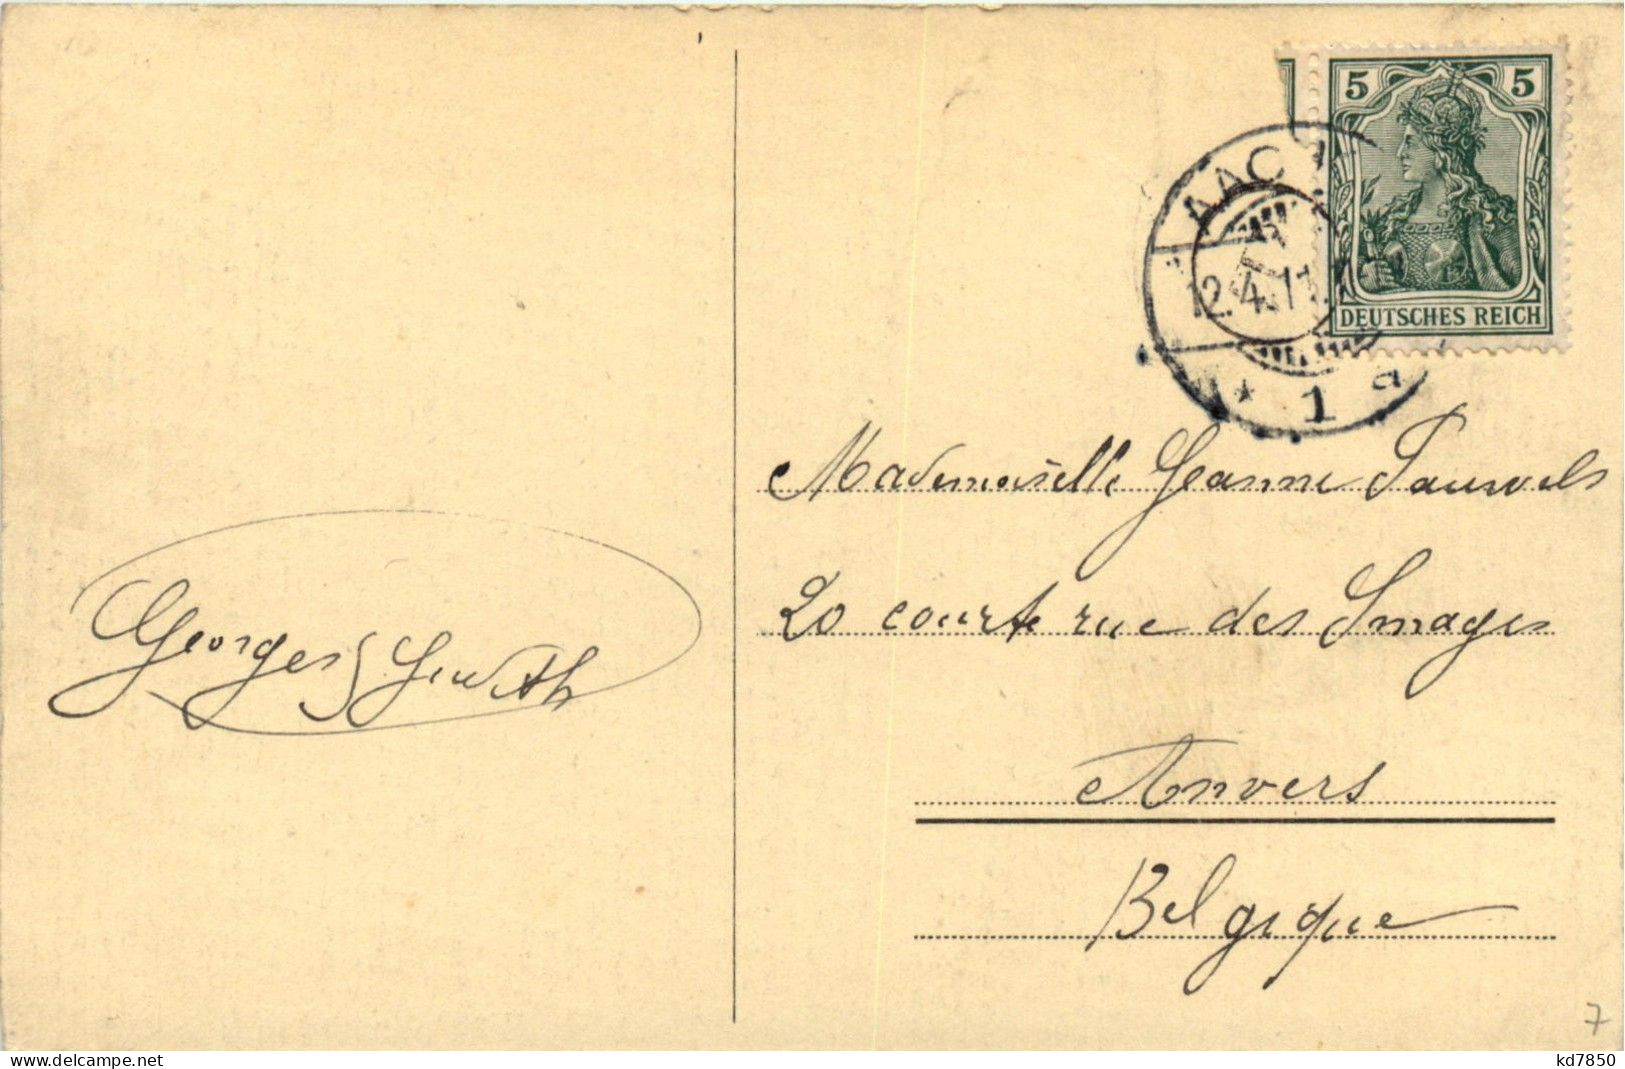 5 5
DEUTSCHES REICH
AAC
12.4.11
* 1 a
Mademoiselle Jeanne Pauwels
20 courte rue des Images
Anvers
Belgique
Georges
7
kd7850